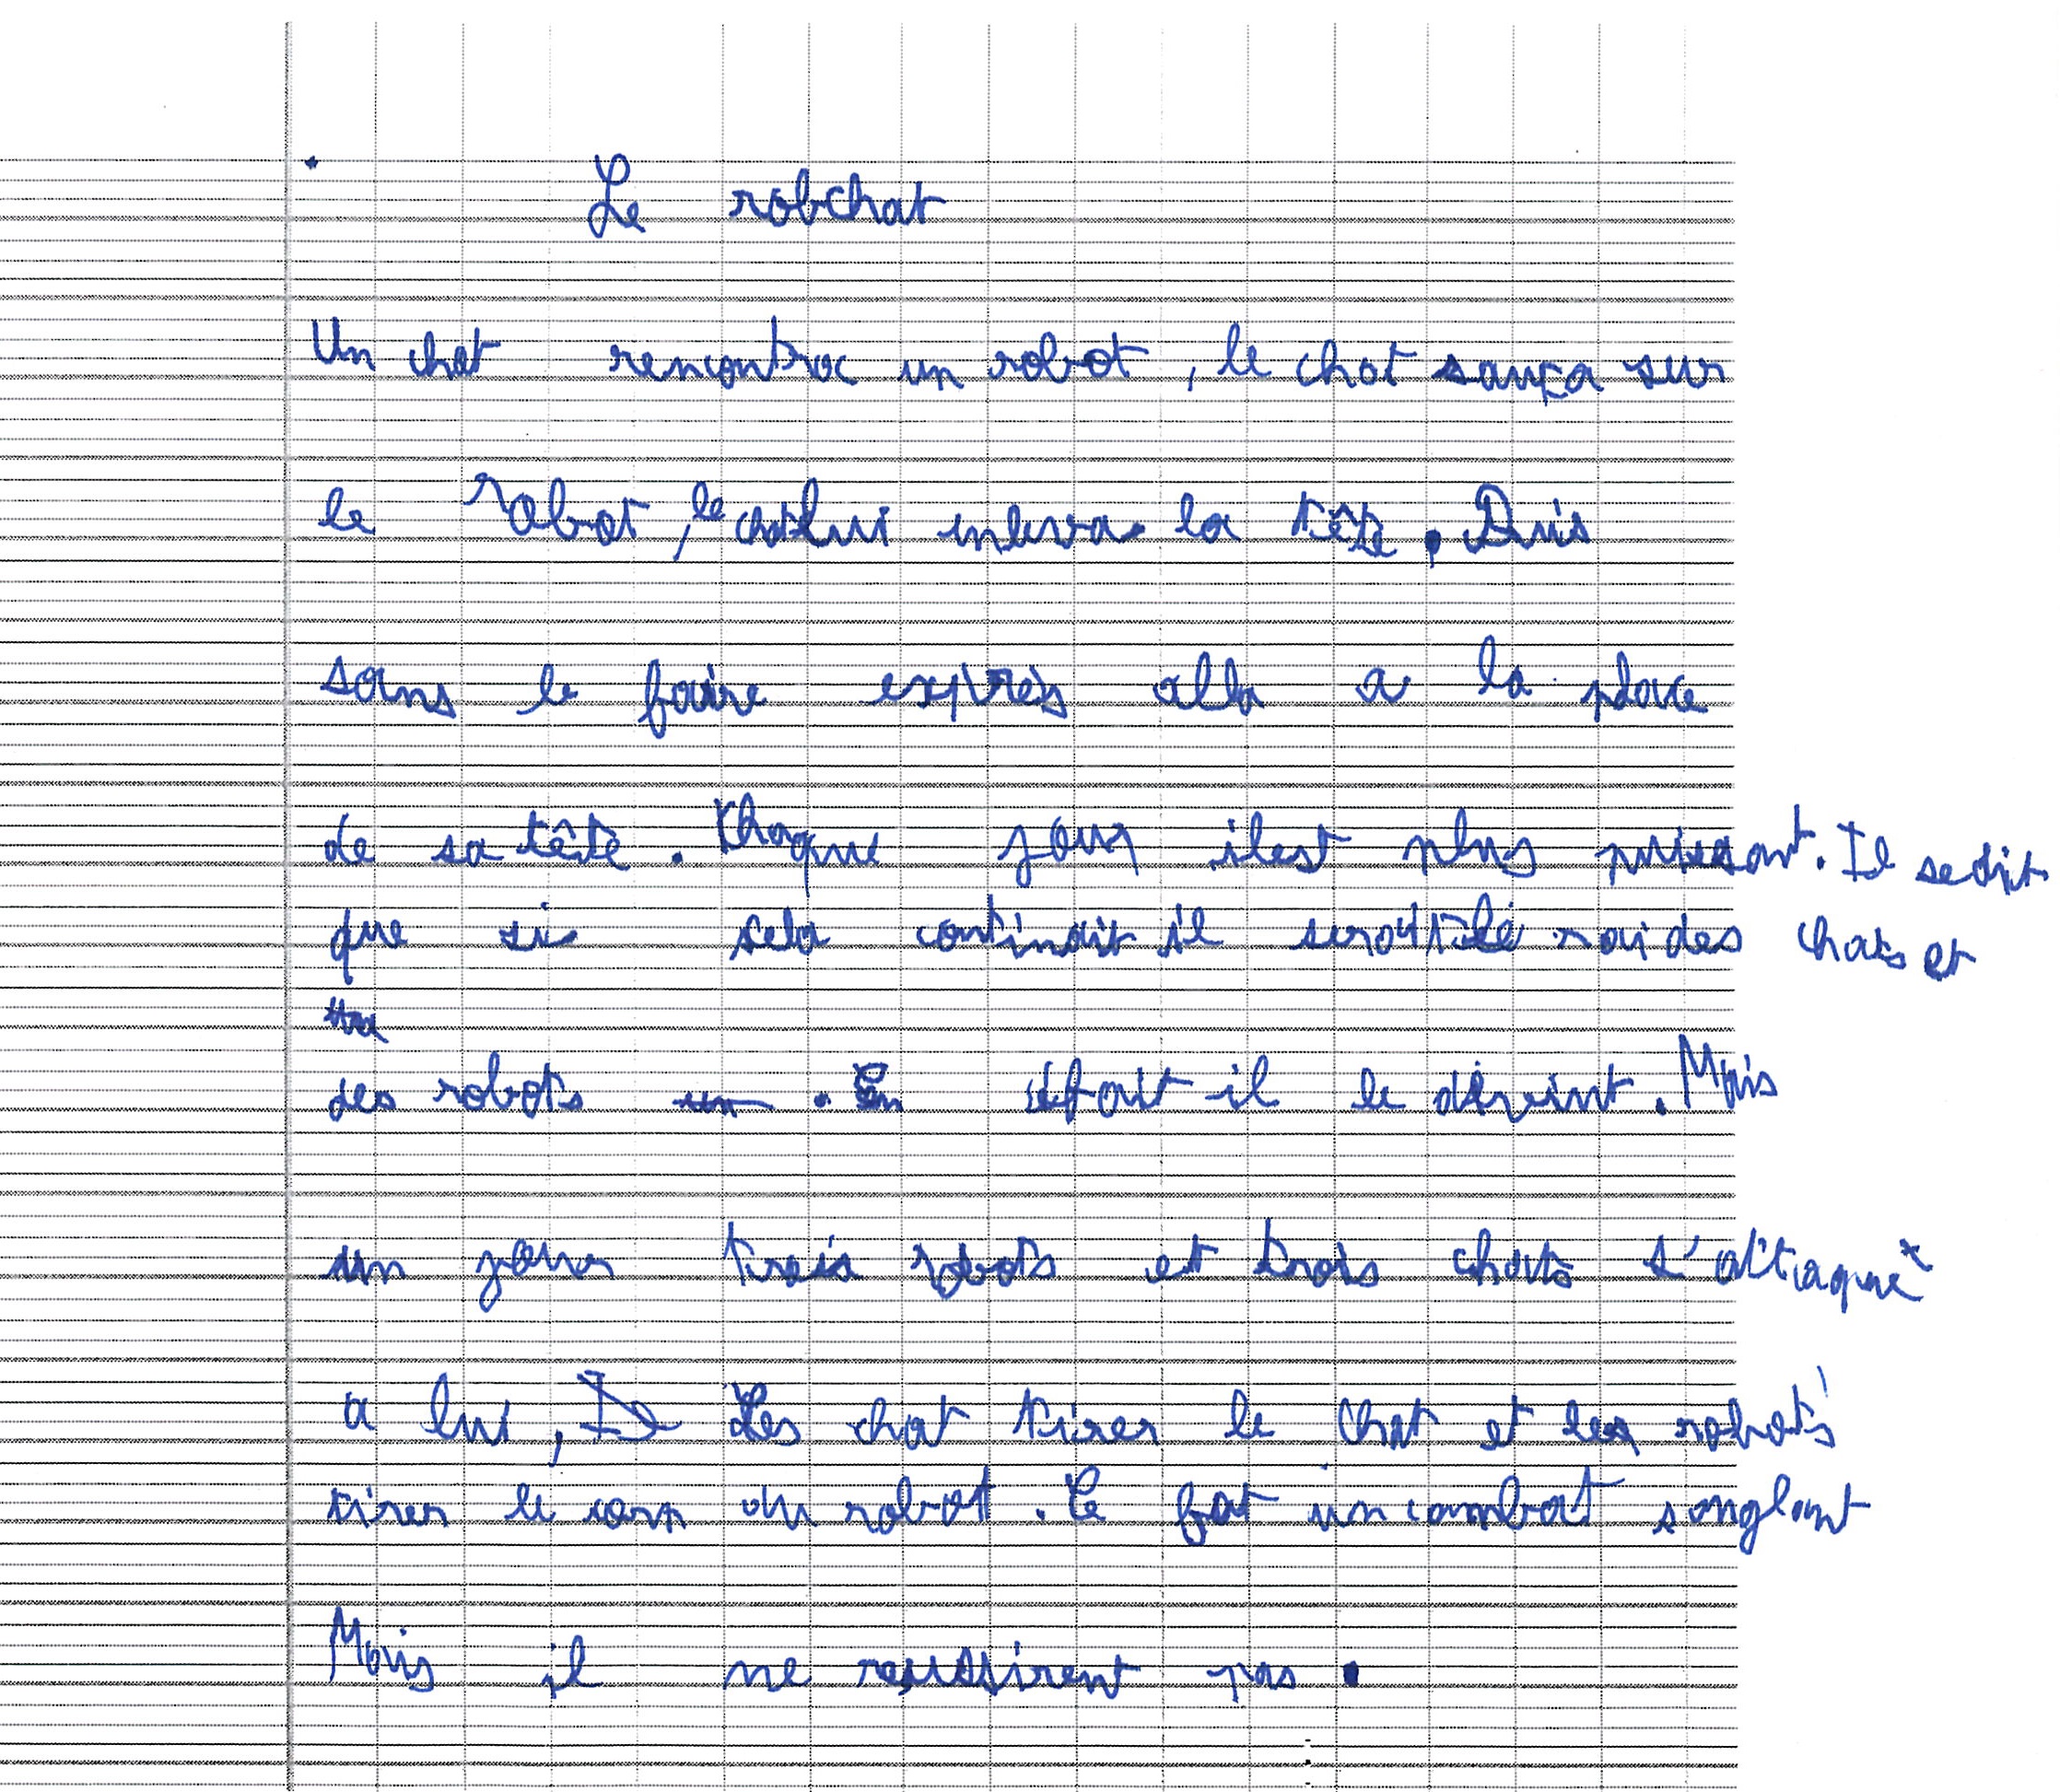 Le robchat
Un chat rencontra un robot, le chat sauça sur
le robot, le chat lui enleva la tête. Puis
sans le faire exprès alla a la place
de sa tête. Chaque jour il est plus puissant. Il se dit
que si sela continait il serait le roi des chats et
des robots . En éfait il le devint. Mais
un jour trois robots et trois chats s'attaque
a lui, Les chat tirer le chat et les robots
tirer le corp du robot. Ce fut un combat sanglant
Mais il ne reussirent pas .